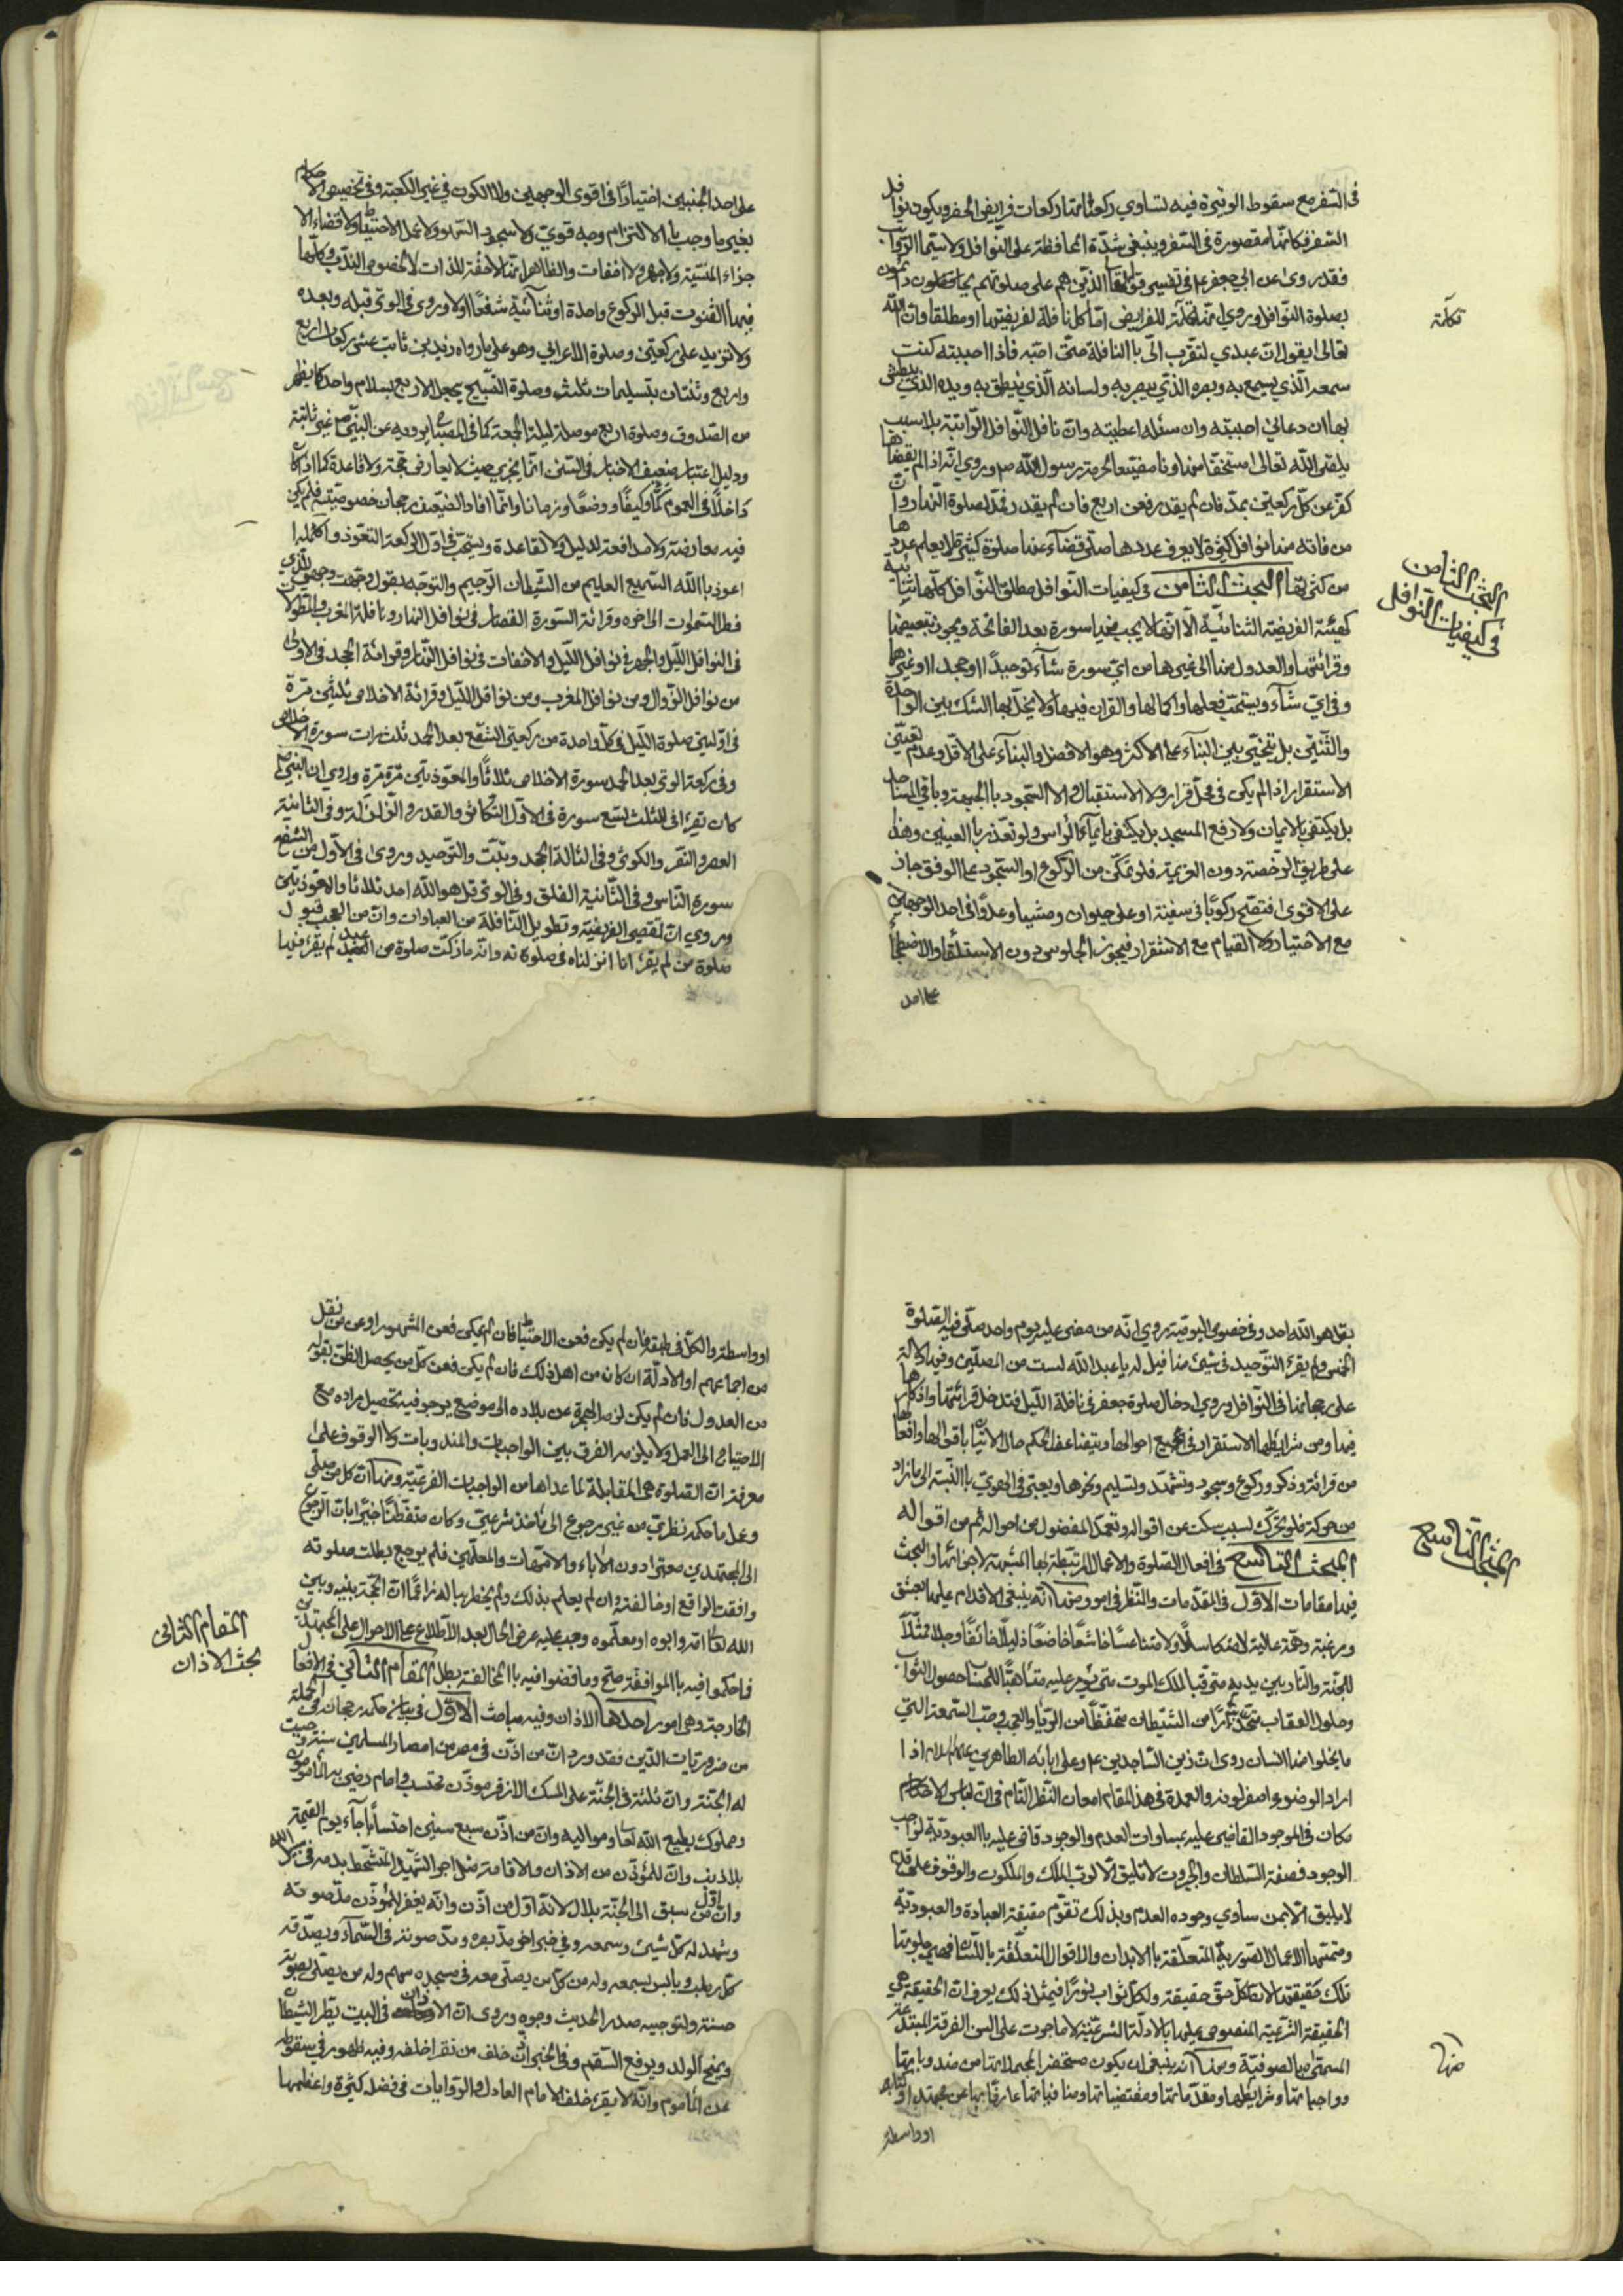 في السفر مع سقوط الوتيرة فيه لتساوي ركعاتها وركعات فرايض الحضر ويكون نوافل
السفر فكانها مقصورة في السفر وينبغي شدّة المحافظة على النوافل ولا سيّما الرّواتب
فقد روى عن ابي جعفر ع في تفسير قوله تعالى الذين هم على صلوتهم يحافظون دائمون
بصلوة النوافل وروي انها تكملة للفرايض امّا كل نافلة لفريضتها او مطلقا وانّ الله
تكملة
تعالى يقول انّ عبدي لتقرّب الىّ باالنافلة حتّى احبّه فاذا احببته كنت
سمعه الّذي يسمع به وبصره الذّي يبصر به ولسانه الّذي ينطق به ويده الذّي يبطش
بها ان دعاني احببته وان سئله اعطيته وانّ تارك النّوافل الرّاتبة بلا سبب
يلقى الله تعالى مستخفّا متهاونا مضيّعا لحرمة رسول الله ص وروي انّه اذا لم يقضها
كفّر عن كلّ ركعتين بمدّ فان لم يقدر فعن اربع فان لم يقدر فمدّ لصلوة النّهار وانّ
من فاته من نوافل كثيرة لا يعرف عددها صلّى قضاء عنها صلوة كثيرة لا يعلم عددها
من كثرتها البحث الثامن في كيفيات النّوافل مطلق النّوافل كلّها ثنائية
البحث الثامن
في كيفيات النّوافل
كهيئة الفريضة الثنائيّة الّا انّها لا يجب فيها سورة بعد الفاتحة ويجوز تبعيضها
وقرائتها والعدول منها الى غيرها من ايّ سورة شآء توحيدًا او جحدا او غيرها
وفي ايّ شآء ويستحبّ فعلها واكمالها والقران فيها ولا يخلّ بها الشك بين الواحدة
والثّنتين بل يتخيّر بين البنآء على الاكثر وهو الافضل والبنآء على الاقل وعدم تعيّن
الاستقرار اذا لم يكن في محلّ قرار ولا الاستقبال ولا السّجود باالجبهة وباقي المساجد
بل يكتفى بالايمآت ولا رفع المسجد بل يكتفى بايمآء الراس ولو تعذر باالعينين وهذا
على طريق الرخصة دون العزيمة فلو تمكّن من الركوع او السّجود على الوفق جاز
على الاقوى فتصحّ ركوبًا في سفينة او على حيوان ومشيا وعدوًا في احد الوجهين
مع الاختيار ولا القيام مع الاستقرار فيجوز الجلوس دون الاستلقاء والاضطجاع
على احد
على احد الجنبين اختيارًا في اقوى الوجهين ولا الكون في غير الكعبة وفي تخصيص الاحكام
بغير ما وجب باالالتزام وجه قويّ ولا سجود السّهو ولا عمل الاحتياط ولا قضاء الا
جزاء المنسيّة ولا جهر ولا اخفات والظاهر انّها لاحقة للذات لا لخصوص الندب وكلّها
فيها القنوت قبل الركوع واحدة او ثنآئية شفعًا اولا وروى في الوتر قبله وبعده
ولا تزيد على ركعتين وصلوة الاعرابي وهو على ما رواه زيد بن ثابت عشر ركعات اربع
واربع وثنتان بتسليمات ثلث وصلوة التسبيح بجعل الاربع بسلام واحد كما يظهر
من الصّدوق وصلوة اربع موصلة ليلة الجمعة كما في المصباح يرويه عن النبيّ ص غير ثابتة
ودليل اعتبار ضعيف الاخبار في السّنن انّما يجري حيث لا يعارض حجّة ولا قاعدة كما اذا كان
داخلًا في العموم كمًّا وكيفًا ووضعًا وزمانا وانّما افاد الضّعيف رجحان خصوصيّته فلم يكن
فيه معارضة ولا مدافعة لدليل ولا لقاعدة ويستحبّ في اوّل الركعة التعوّذ واكملها
اعوذ باالله السّميع العليم من الشّيطان الرّجيم والتوجّه بقول وجّهت وجهي للذي
فطر السّموات الى اخره وقرائة السّورة القصار في نوافل النهار ونافلة المغرب والمطوّلات
في النوافل اللّيل والجهر في نوافل اللّيل والاخفات في نوافل النّهار وقرائة الجحد في الاولى
من نوافل الزّوال ومن نوافل المغرب ومن نوافل اللّيل وقرائة الاخلاص ثلثين مرّة
في اوّلتي صلوة اللّيل في كلّ واحدة من ركعتي الشفع بعد الحمد ثلث مرات سورة الاخلاص
وفي ركعة الوتر بعد الحمد سورة الاخلاص ثلاثًا والمعوّذتين مرّة مرّة وروي ان النبيّ ص
كان يقرء في الثلث تسع سورة في الاول التّكاثر والقدر والزّلزلة وفي الثانية
العصر والنّصر والكوثر وفي الثالثة الجحد وتبّت والتّوحيد وروى في الاوّل من الشفع
سورة النّاس وفي الثّانية الفلق وفي الوتر قل هو الله احد ثلاثا والمعوّذتين
وروي انّ تقصير الفريضة وتطويل النّافلة من العبادات وانّ من العجب قبول
صلوة من لم يقرء انا انزلناه في صلوته وانّه ما زكت صلوة من العبد لم يقرء فيها
بقل هو الله احد وفي خصوص اليوميّة روي انّه من مضى عليه يوم واحد صلّى فيه الصّلوة
الخمس ولم يقرء التّوحيد في شيئ منها قيل له يا عبد الله لست من المصلّين وفيه دلالة
على رجحانها في النّوافل وروي ادخال صلوة جعفر في نافلة اللّيل فتدخل قرائتها واذكارها
فيها ومن شرايطها الاستقرار في جميع احوالها ويتضاعف الحكم حال الاتيان باقوالها وافعالها
من قرائة وذكر وركوع وسجود وتشهّد وتسليم ونحوها ويعتبر في الهويّ باالنّسبة الى ما زاد
من حركة فلو تحرّك لسبب سكت عن اقواله وتعمّد المفضول من احواله ثم من اقواله
المبحث التاسع في افعال الصّلوة والاعمال المرتبطة بها المشبهة لاجزائها والبحث
المبحث التّاسع
فيها مقامات الاوّل في المقدّمات والنّظر في امور منها انّه ينبغي الاقدام عليها بعشق
ورغبة وهمّة عالية لا متكاسلًا ولا متناعسًا خاشعًا خاضعًا ذليلًا خائفًا وجلا ممثّلًا
للجنّة والنّار بين يديه مترقّبا لملك الموت متى يؤمر عليه متاهبًّا للحساب حصول الثواب
وحلول العقاب متحذّرًا من الشّيطان متحفّظًا من الرّيا والعجب وحبّ السّمعة الّتي
ما يخلوا منها انسان روى انّ زين السّاجدين ع وعلى ابائه الطاهرين عليهم السلام اذا
اراد الوضوء اصفر لونه والعمدة في هذا المقام امعان النّظر التّام في انّ لباس الاحكام
مكان في الموجود القاضي عليه بمساوات العدم والوجود قاض عليه باالعبوديّة لواجب
الوجود فصفة السّلطان والجبروت لا تليق الّا لربّ الملك والملكوت والوقوف على قدم
لا يليق الّا بمن ساوي وجوده العدم وبذلك تقوّم حقيقة العبادة والعبوديّة
ومتمّتها الاعمال الصّوريّة المتعلّقة باالابدان والاقوال المتعلّقة باللّسان
تلك حقيقتها لانّ لكلّ حقّ حقيقة ولكلّ ثواب نورًا فبمثل ذلك يعرف انّ الحقيقة هي
الحقيقة الشّرعيّة المنصوص عليها باالادلّة الشرعيّة لا ما جرت على السن الفرقة المبتدعة
المسمّى بالصوفيّة ومنها انّه ينبغي ان يكون مستحضر المجملاتها من ضد وباينها
منها
وواجباتها وشرايطها ومقدّماتها ومقتضياتها ومنافياتها عارفًا بها عن مجتهد
او واسطة
او واسطة والكلّ في طبقة فان لم يكن فعن الاحتياط فان لم يكن فعن المشهور او عن من نقل
من اجماعهم او الادلّة ان كان من اهل ذلك فان لم يكن فعن كلّ من يحصل الظن بقوله
من العدول فان لم يكن لزم الهجرة عن بلاده الى موضع يرجو فيه تحصيل مراده مع
الاحتياج الى العمل ولا يلزمه الفرق بين الواجبات والمندوبات ولا الوقوف على
معرفة انّ الصّلوة هي المقابلة لما عداها من الواجبات الفرعيّة ومنها انّ كل من صلّى
وعمل ما حكمه نظريّ من غير رجوع الى مأخذ شرعيّ وكان متفطّنًا خبيرًا بات الرّجوع
الى المجتهدين معتبرا دون الاباء والامّهات والمعلّمين فلم يرجع بطلت صلوته
وافقت الواقع او خالفته وان لم يعلم بذلك ولم يخطر بباله زاعمًا انّ الحجّة بينه وبين
الله تعالى امّه وابوه او معلّموه وجب عليه عرض الحال بعد الاطّلاع على الاحوال على المجتهد
فاحكموا فيه باالموافقة صحّ وما قضوا فيه باالمخالفة بطل المقام الثّاني في الافعال
المقام الثاني
بحث الاذان
الخارجة وهي امور احدها الاذان وفيه مباحث الاوّل في بيان حكمه رجحانه في الجملة
من ضروريّات الدّين فقد ورد انّ من اذّن في مصر من امصار المسلمين سنة وجبت
له الجنّة وانّ ثلثة في الجنّة على المسك الاذفر مؤذّن محتسب وامام رضي به المأمومون
ومملوك يطيع الله تعالى ومواليه وانّ من اذّن سبع سنين احتسابًا جآء يوم القيمة
بلا ذنب وانّ للمؤذّن من الاذان والاقامة مثل اجر الشّهيد المتشحّط بدمه في سبيل الله
وانّ اوّل من سبق الى الجنّة بلال لانّه اوّل من اذّن وانّه يغفر للمؤذّن مدّ صوته
وشهد له كلّ شيئ وسمعه وفي خبر اخر مدّ بصره ومدّ صوته في السّمآء ويصدّقه
كلّ رطب ويابس يسمعه وله من كلّ من يصلّي معه في مسجده سهم وله من يصلّي بصوته
حسنة ولتوجيه صدر الحديث وجوه وروى انّ الاذان في البيت يطرد الشّيطان
ويمنح الولد ويرفع السّقم وفي الخبر انّ خلف من نقر اخلفه وفيه ظهور في سقوطه
عن المأموم وانّه لا يقرء خلف الامام العادل والرّوايات في فضله كثيرة واعظمها